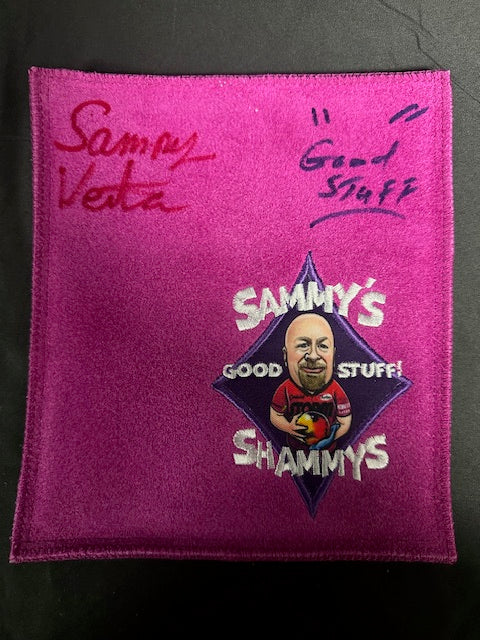 Sammy
Venta
" "
Good
STuFF
SAMMY'S
GOOD STUFF!
SHAMMYS